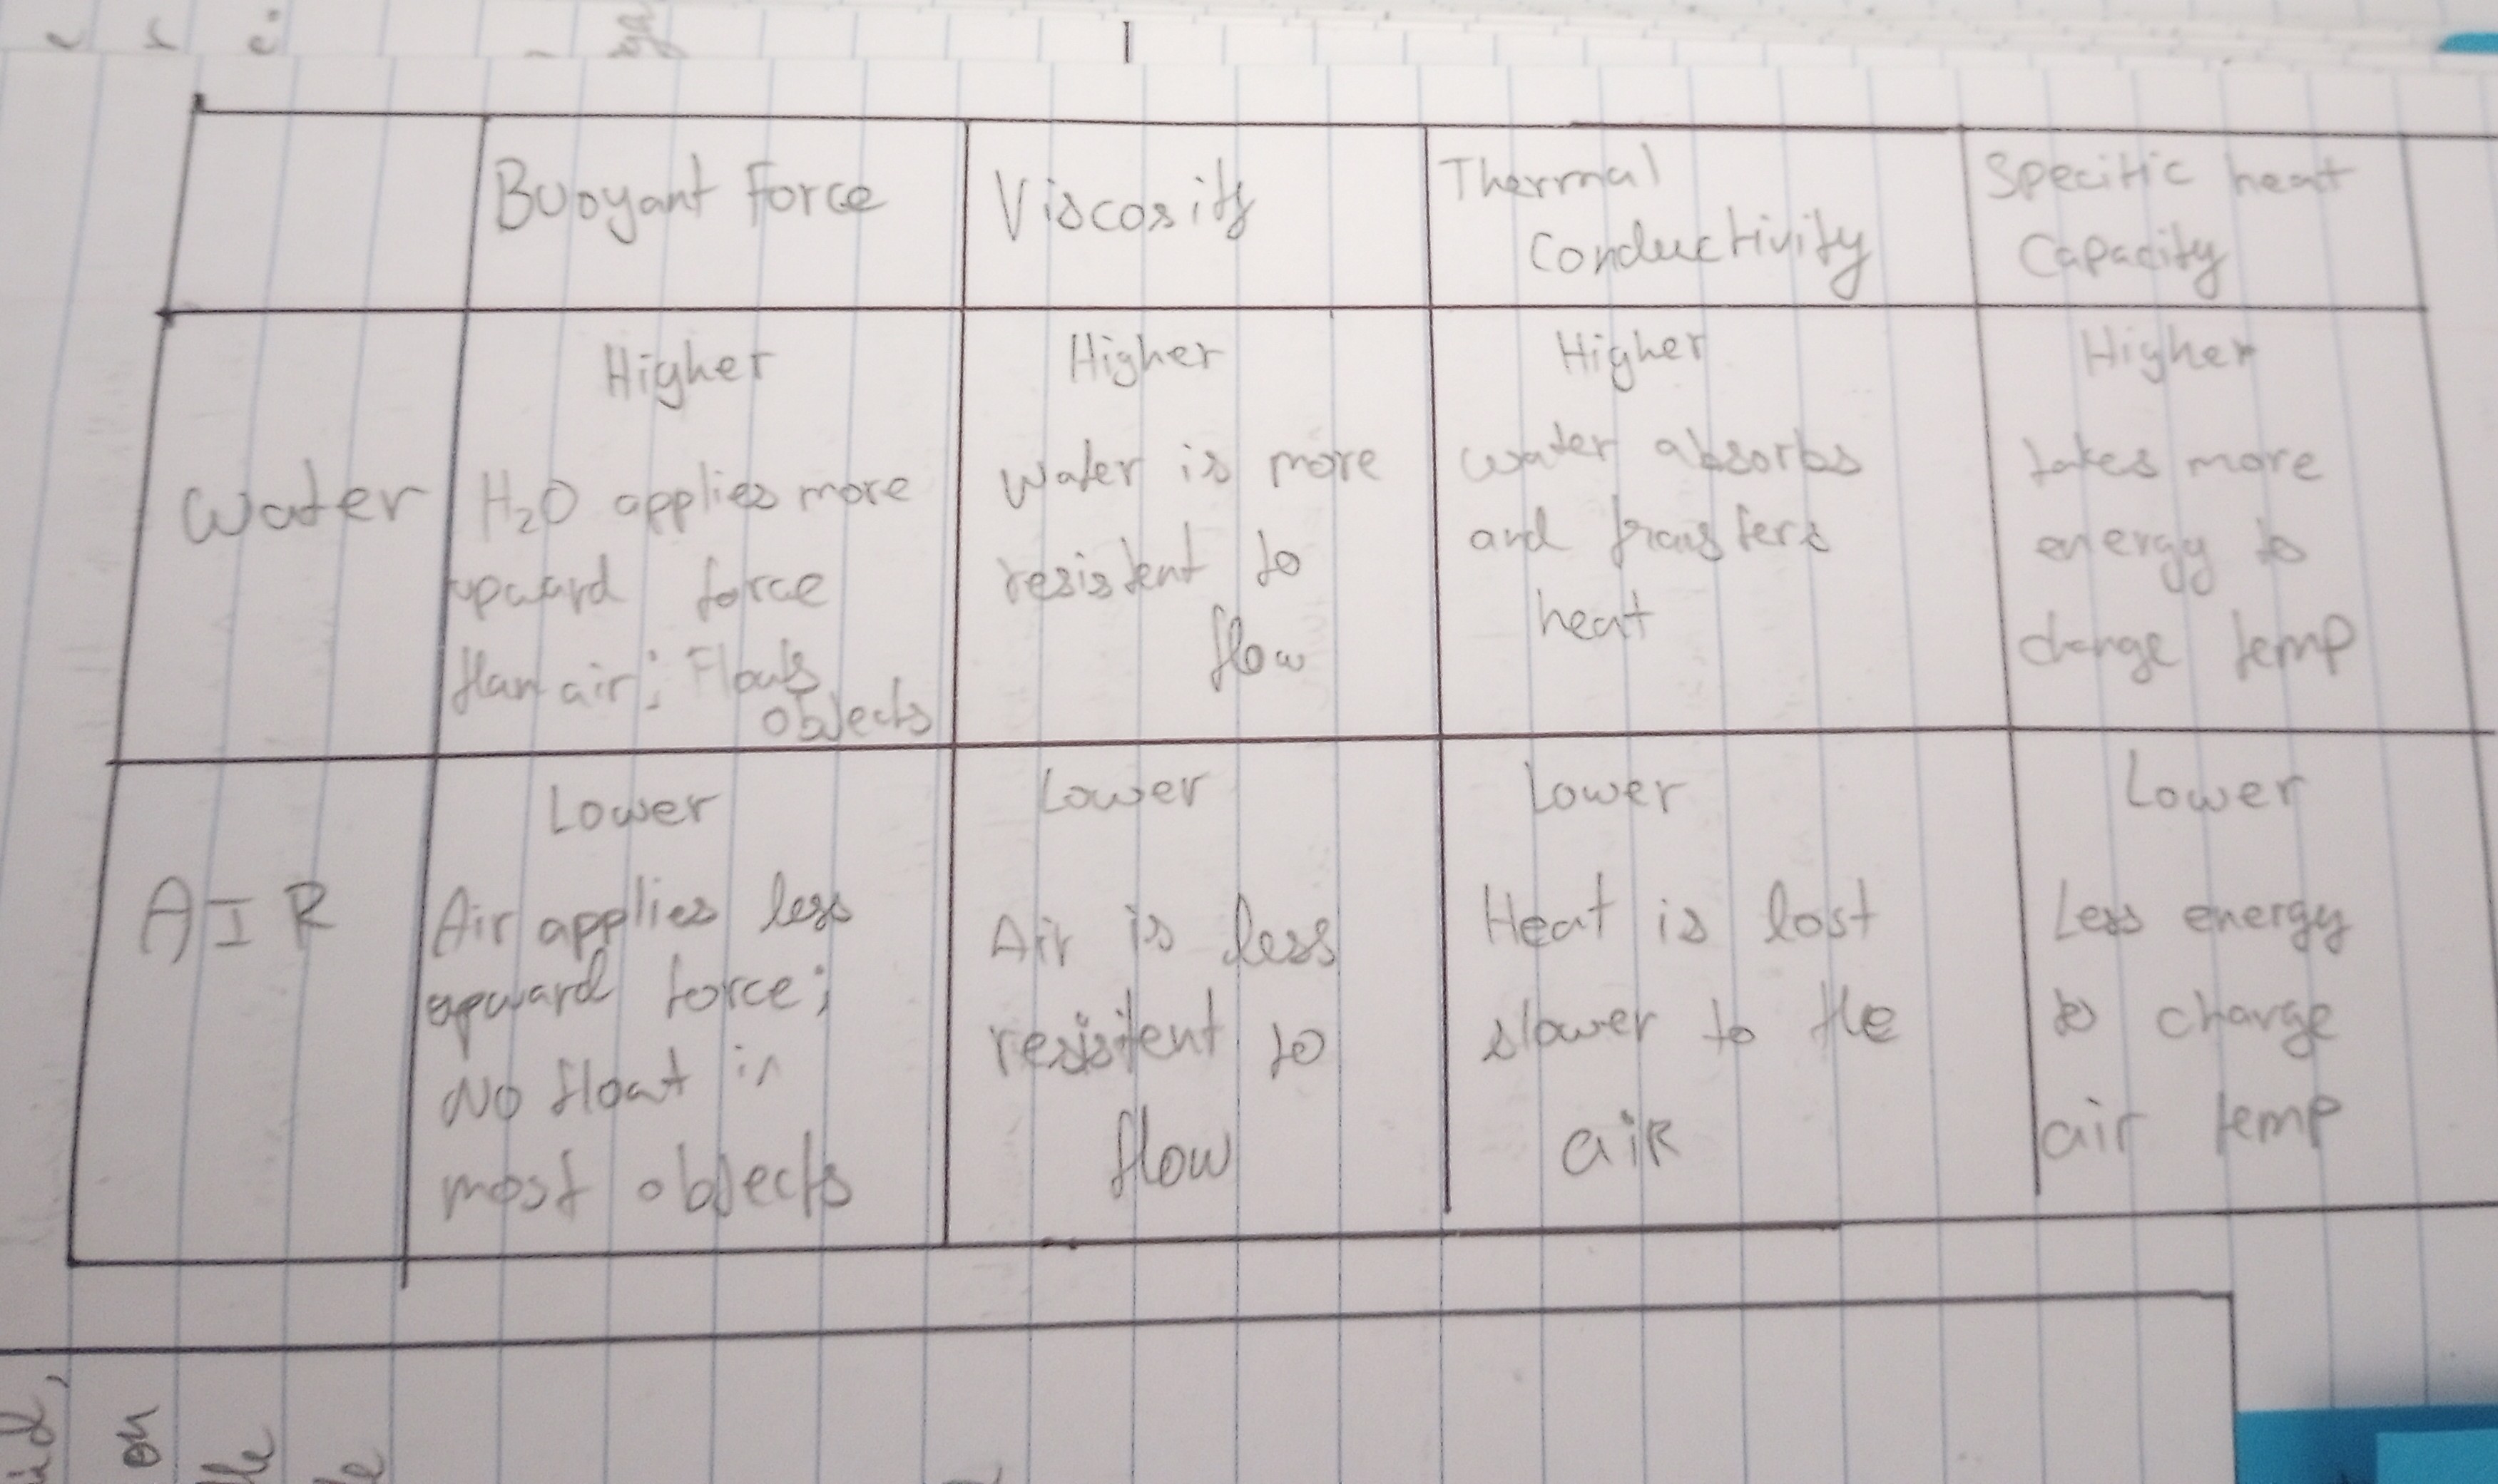 Buoyant Force
Viscosity
Thermal
Conductivity
Specific heat
Capacity
Water
Higher
H₂O applies more
upward force
than air; Floats
objects
Higher
Water is more
resistent to
flow
Higher
water absorbs
and transfers
heat
Higher
takes more
energy to
change temp
AIR
Lower
Air applies less
upward force;
No float in
most objects
Lower
Air is less
resistent to
flow
Lower
Heat is lost
slower to the
aiR
Lower
Less energy
to change
air temp
on